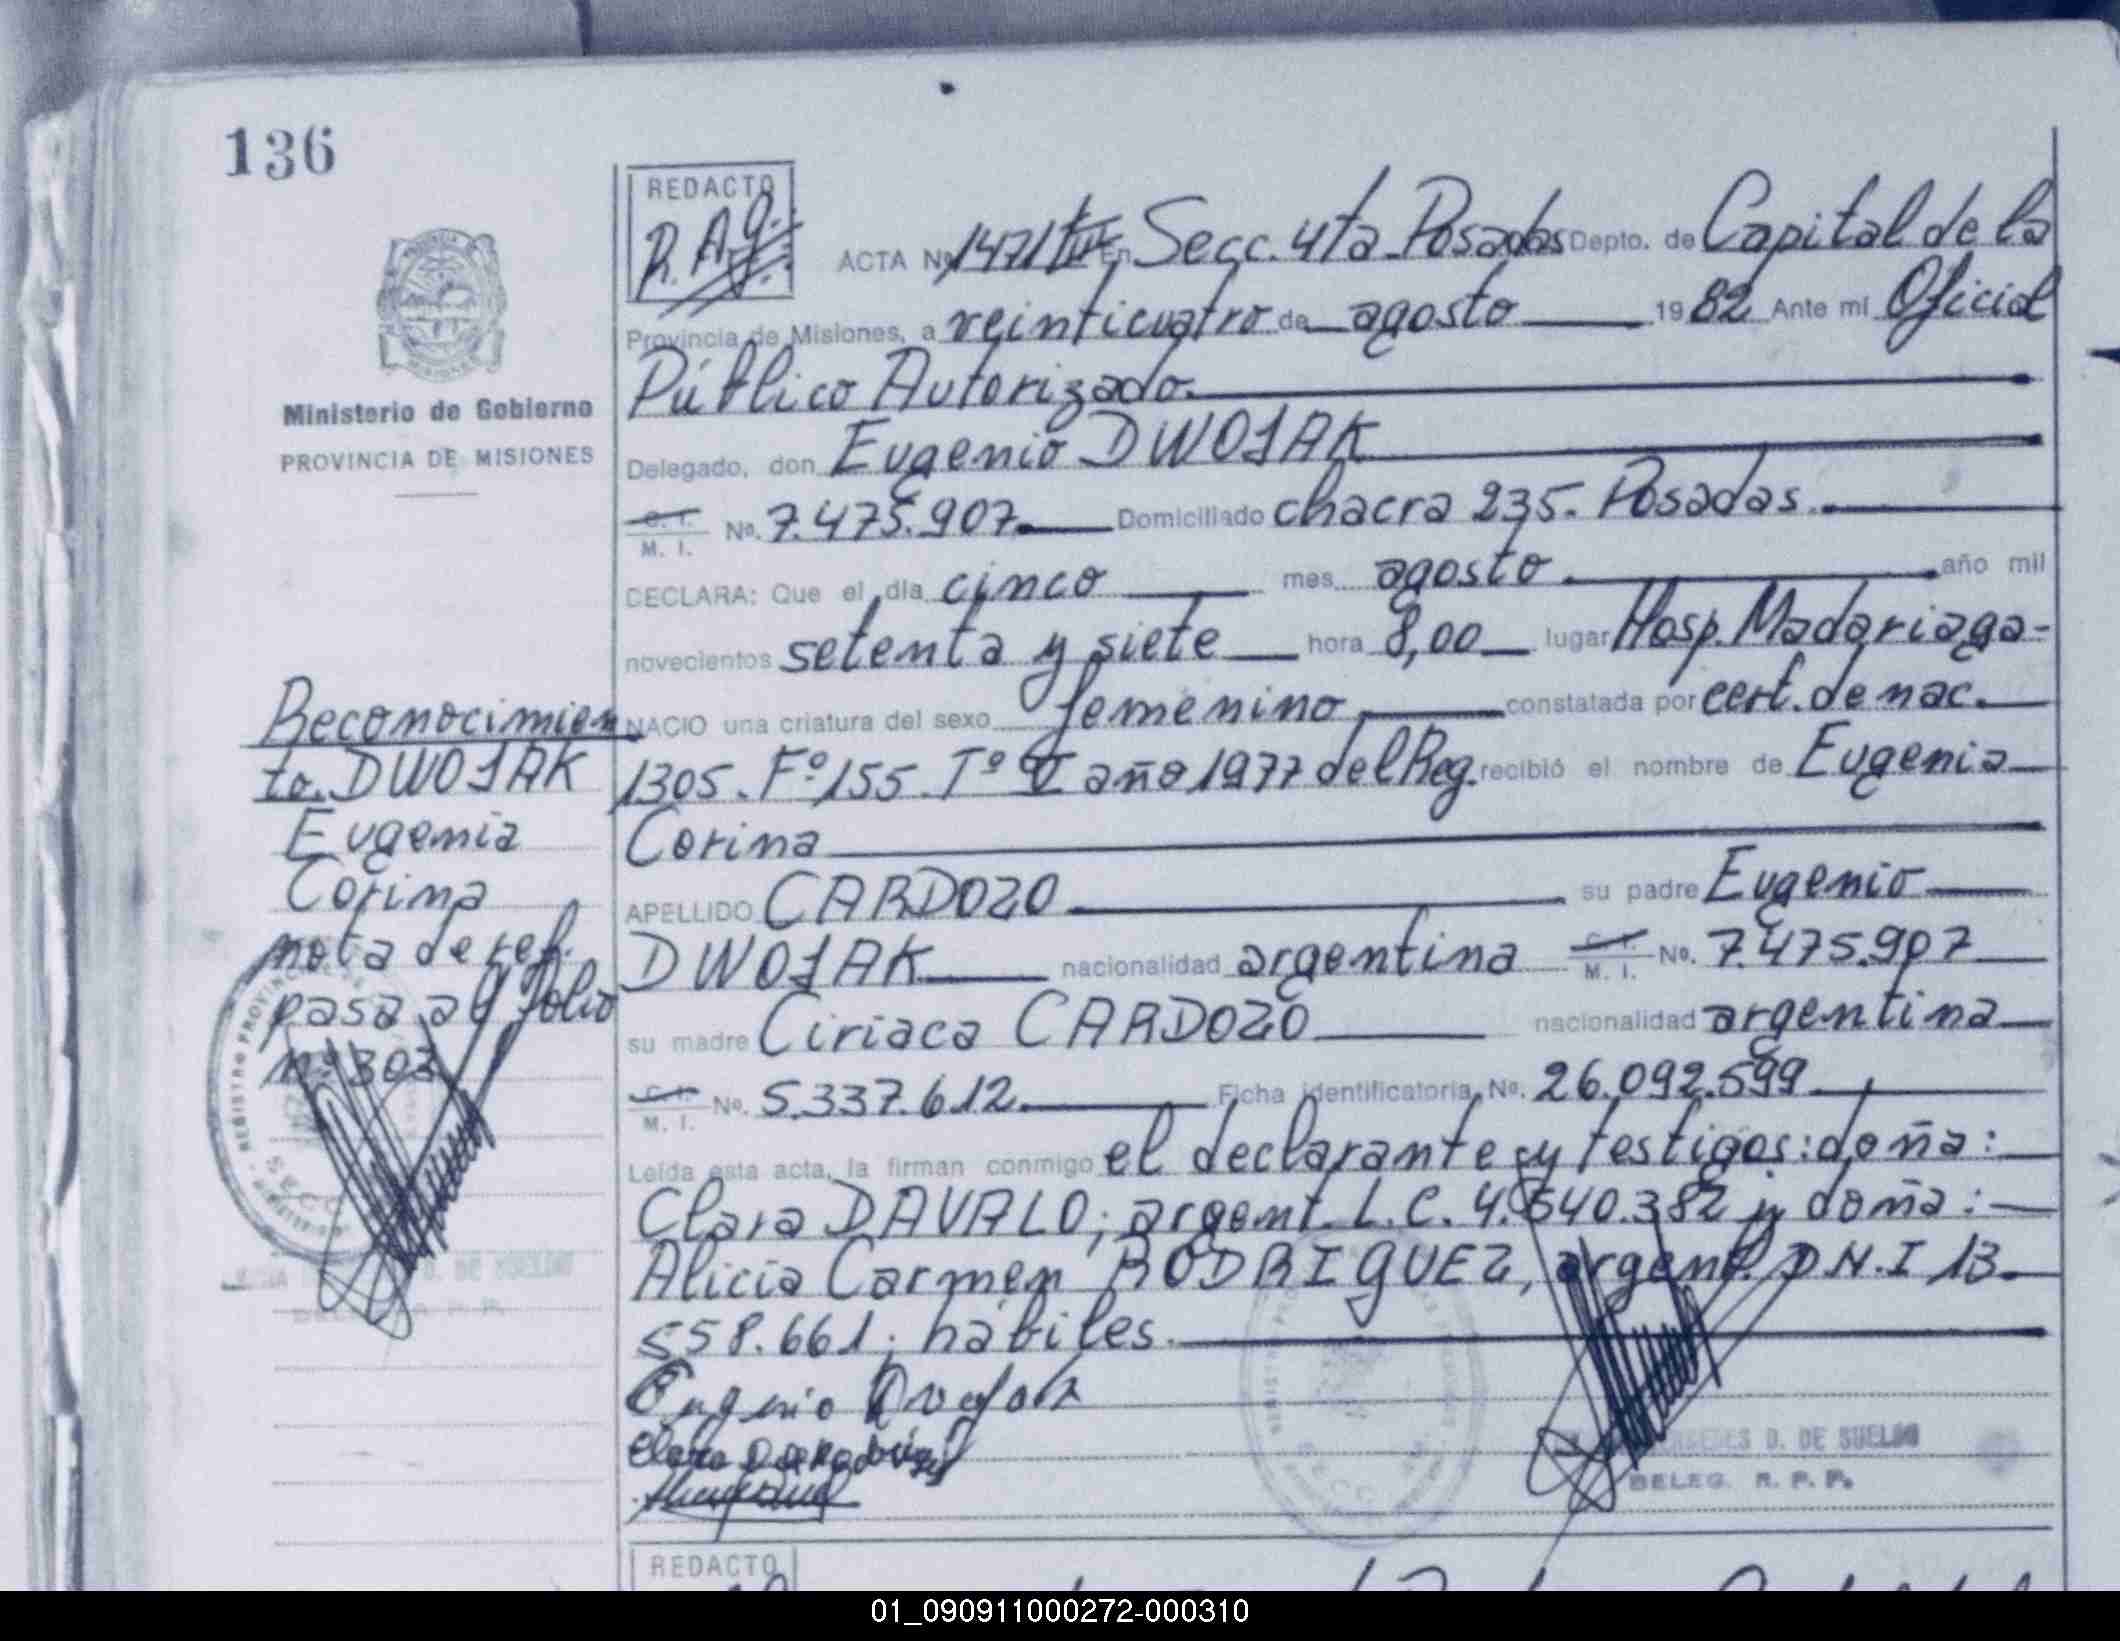 136
REDACTO
R.A.G.
ACTA No 1471 En Secc. 4ta Posadas Depto. de Capital de la
Provincia de Misiones, a veinticuatro de agosto 1982 Ante mí Oficial
Público Autorizado.
Ministerio de Gobierno
PROVINCIA DE MISIONES
Delegado, don Eugenio DWOJAK
C. I. M. I. No. 7.475.907 Domiciliado chacra 235. Posadas.
DECLARA: Que el día cinco mes agosto año mil
novecientos setenta y siete hora 8,00 lugar Hosp. Madariaga-
NACIO una criatura del sexo femenino constatada por cert. de nac.
1305. Fº 155. Tº V año 1977 del Reg. recibió el nombre de Eugenia
Corina
APELLIDO CARDOZO su padre Eugenio
DWOJAK nacionalidad argentina C. I. M. I. No. 7.475.907
su madre Ciriaca CARDOZO nacionalidad argentina
C. I. M. I. No. 5.337.612 Ficha identificatoria No. 26.092.599
Leída esta acta, la firman conmigo el declarante y testigos: doña:
Clara DAVALO; argent. L.C. 4.540.382 y doña:
Alicia Carmen RODRIGUEZ, argent. D.N.I 13.
558.661; hábiles.
Reconocimien
to. DWOJAK
Eugenia
Corina
nota de ref.
pasa al folio
nº 303
Eugenio Dwojak
D. DE SUELDO
DELEG. R. P. P.
REDACTO
01_090911000272-000310